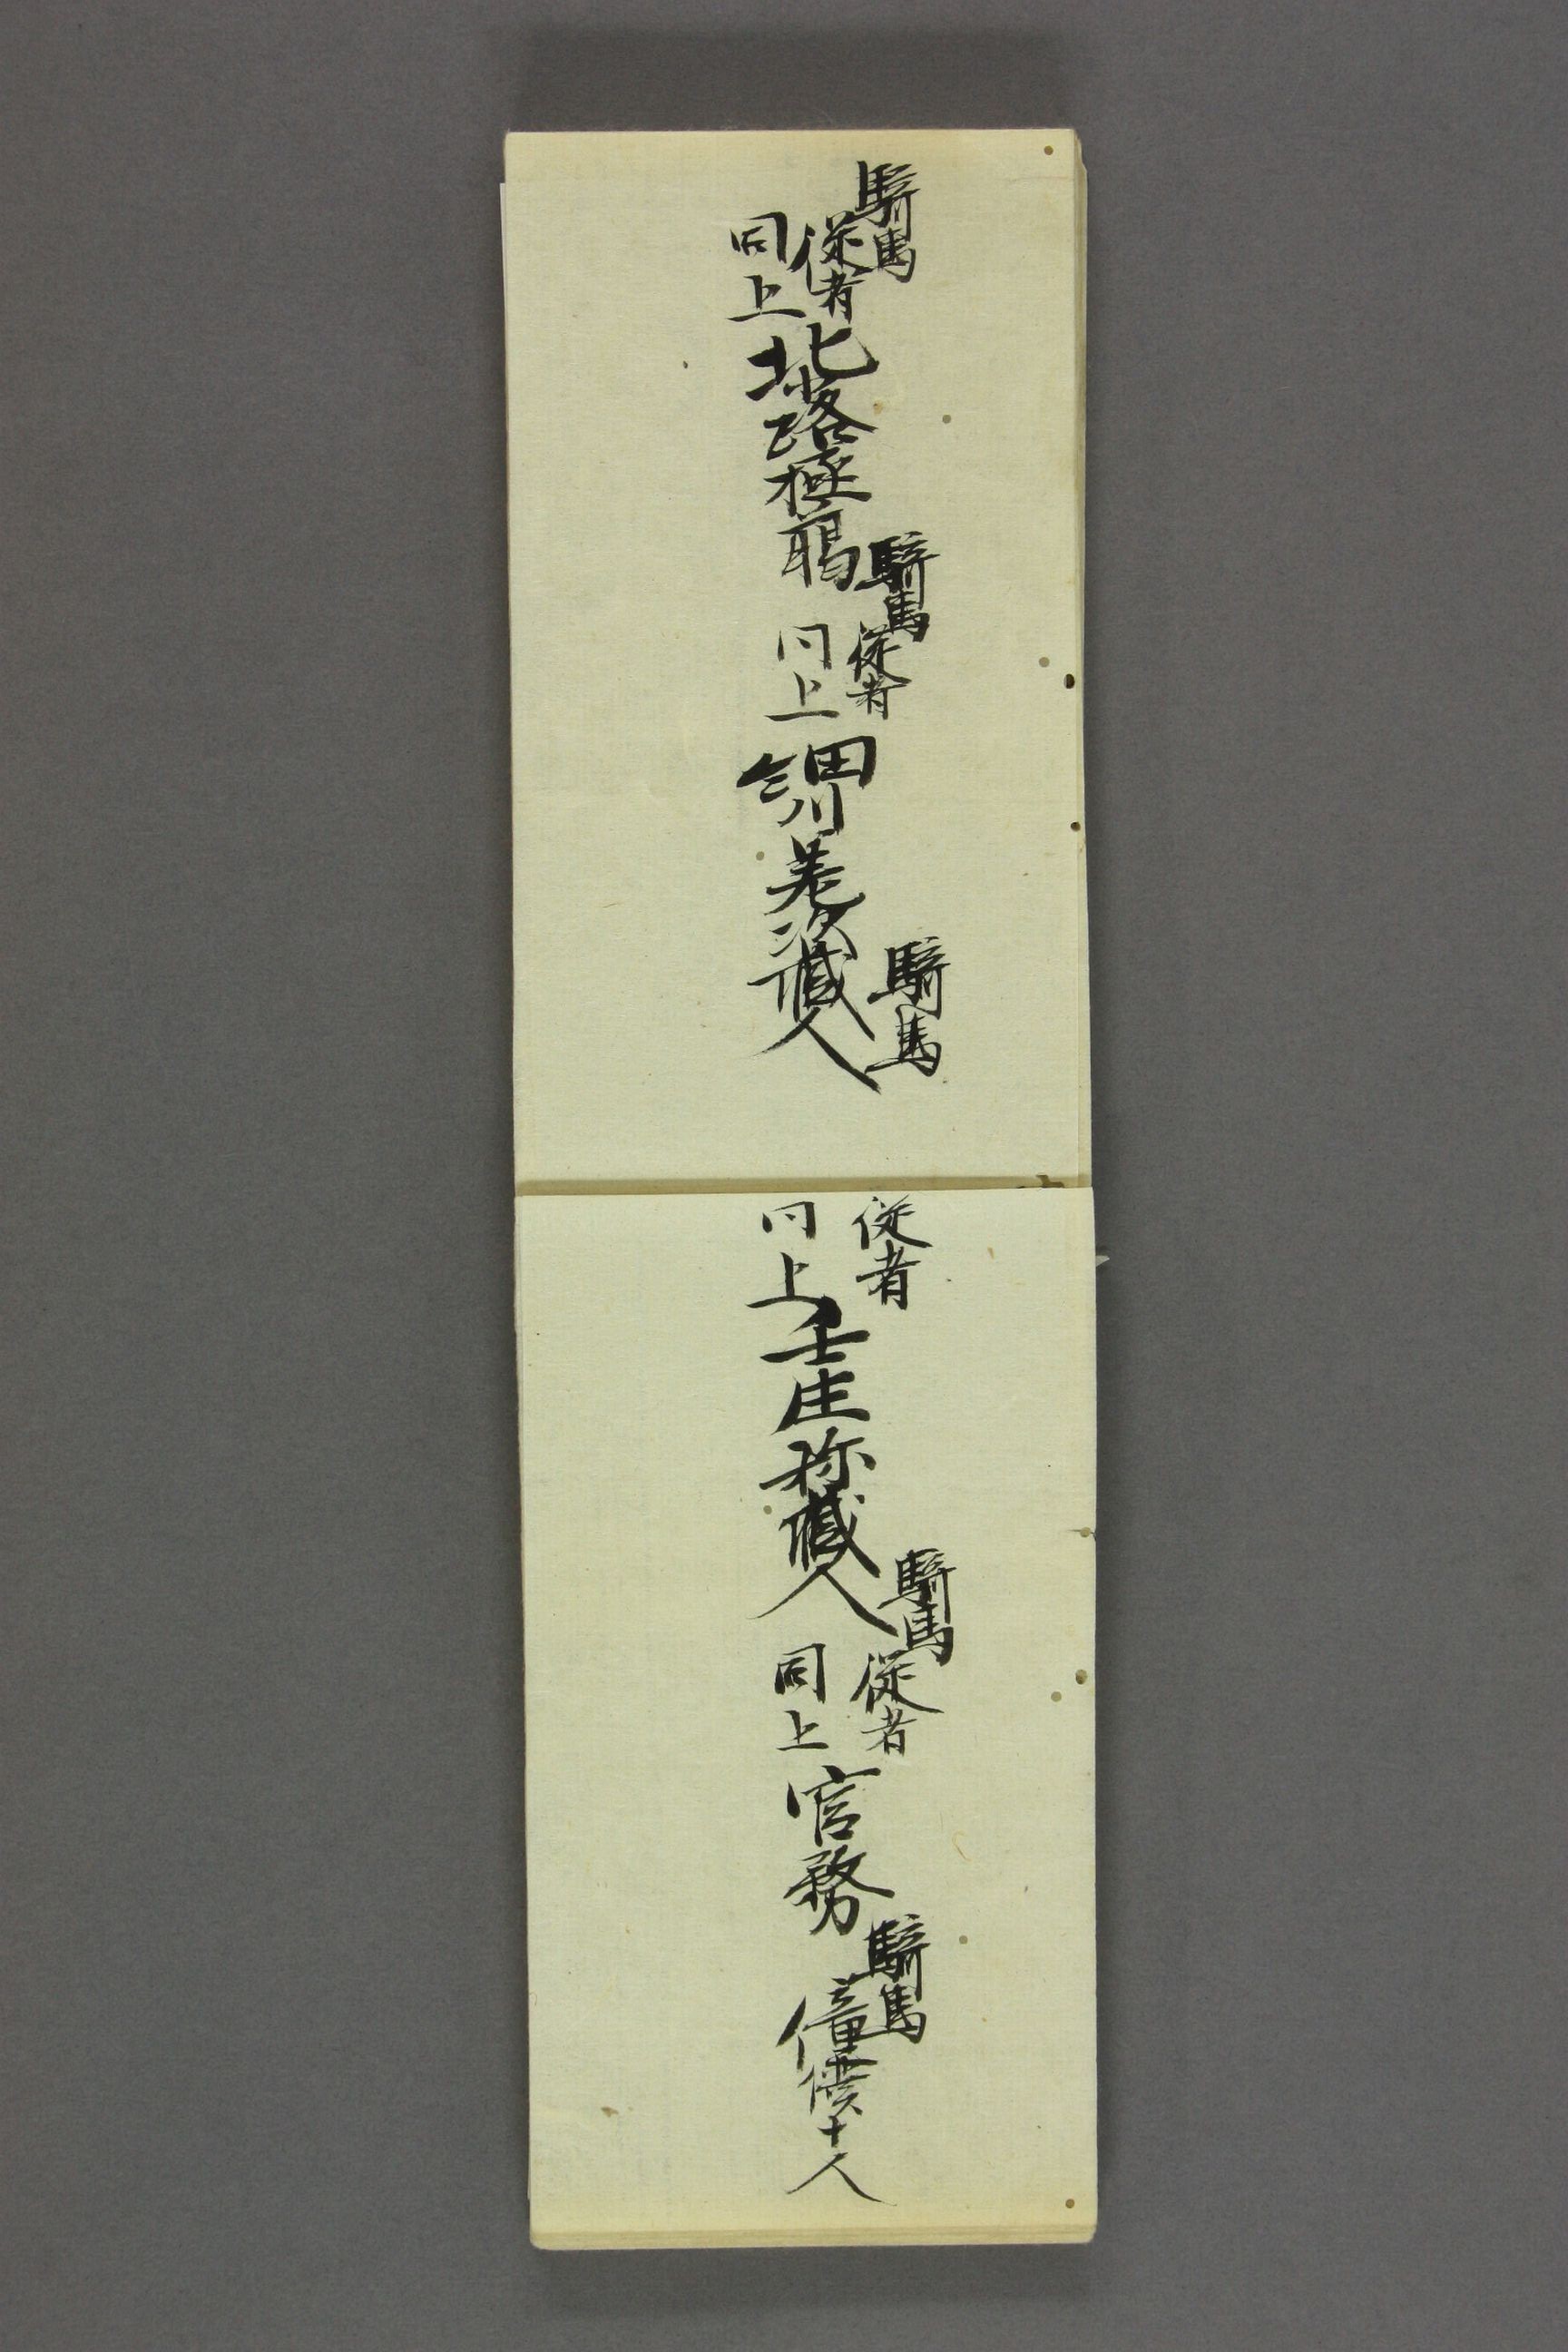 騎馬
従者
同上
北小路極﨟
騎馬
従者
同上
細川差次蔵人
騎馬
従者
同上
壬生称蔵人
騎馬
従者
同上
官務
騎馬
僮僕十人